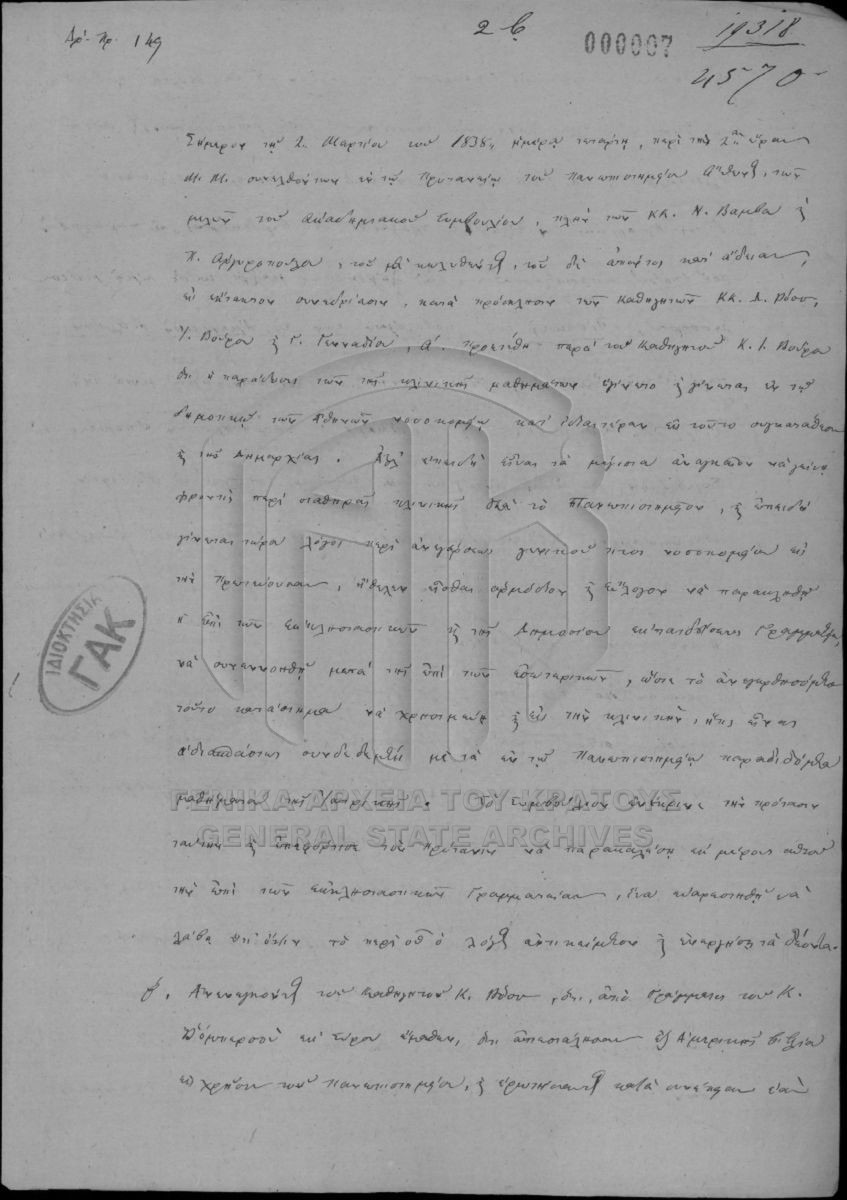 Ἀρ. Πρ. 149
2 β
000007
19318
4570
Σήμερον τῇ 2 Μαρτίου τοῦ 1838, ἡμέρᾳ τετάρτῃ, περὶ τὴν 2αν ὥραν
Μ.Μ. συνελθόντων ἐν τῷ Πρυτανείῳ τοῦ Πανεπιστημίου Ὄθωνος, τῶν
μελῶν τοῦ Ἀκαδημιακοῦ Συμβουλίου, πλὴν τῶν ΚΚ. Ν. Βάμβα καὶ
Π. Ἀργυροπούλου, τοῦ μὲν κωλυθέντος, τοῦ δὲ ἀπόντος κατ' ἄδειαν,
εἰς ἔκτακτον συνεδρίασιν, κατὰ πρόσκλησιν τῶν καθηγητῶν ΚΚ. Λ. Ρόσου,
Ἰ. Βούρου καὶ Γ. Γενναδίου, Α'. προετέθη παρὰ τοῦ καθηγητοῦ Κ. Ι. Βούρου
ὅτι ἡ παράδοσις τῶν τῆς κλινικῆς μαθημάτων ἐγίνετο καὶ γίνεται ἐν τῷ
δημοτικῷ τῶν Ἀθηνῶν νοσοκομείῳ κατ' ἰδιαιτέραν εἰς τοῦτο συγκατάθεσιν
τῆς Δημαρχίας. Ἀλλ' ἐπειδὴ εἶναι τὰ μέγιστα ἀναγκαῖον νὰ γείνῃ
φροντὶς περὶ σταθηρᾶς κλινικῆς διὰ τὸ Πανεπιστήμιον, καὶ ἐπειδὴ
γίνεται τώρα λόγος περὶ ἀνεγέρσεως γενικοῦ τινος νοσοκομείου εἰς
τὴν Πρωτεύουσαν, ἤθελεν εἶσθαι ἁρμόδιον καὶ εὔλογον νὰ παρακληθῇ
ἡ ἐπὶ τῶν ἐκκλησιαστικῶν καὶ τῆς Δημοσίου ἐκπαιδεύσεως Γραμματεία,
νὰ συνεννοηθῇ μετὰ τῆς ἐπὶ τῶν ἐσωτερικῶν, ὥστε τὸ ἀνεγερθησόμενον
τοῦτο κατάστημα νὰ χρησιμεύῃ καὶ εἰς τὴν κλινικὴν, ἥτις εἶναι
ἀδιασπάστως συνδεδεμένη μὲ τὰ ἐν τῷ Πανεπιστημίῳ παραδιδόμενα
μαθήματα τῆς Ἰατρικῆς. Τὸ Συμβούλιον ἐνέκρινε τὴν πρότασιν
ταύτην καὶ ἐπεφόρτισε τὸν Πρύτανιν νὰ παρακαλέσῃ ἐκ μέρους αὐτοῦ
τὴν ἐπὶ τῶν ἐκκλησιαστικῶν Γραμματείαν, ἵνα εὐαρεστηθῇ νὰ
λάβῃ ὑπ' ὄψιν τὸ περὶ οὗ ὁ λόγος ἀντικείμενον καὶ ἐνεργήσῃ τὰ δέοντα.
β. Ἀναγγείλαντος τοῦ καθηγητοῦ Κ. Ρόσου, ὅτι, ἀπὸ γράμματος τοῦ Κ.
ἐκ Σύρου ἔμαθεν, ὅτι ἀπεστάλησαν ἐξ Ἀμερικῆς βιβλία
εἰς χρῆσιν τοῦ Πανεπιστημίου, καὶ ἐρωτήσαντος κατὰ συνέπειαν ἐὰν
ΙΔΙΟΚΤΗΣΙΑ
ΓΑΚ
ΓΕΝΙΚΑ ΑΡΧΕΙΑ ΤΟΥ ΚΡΑΤΟΥΣ
GENERAL STATE ARCHIVES